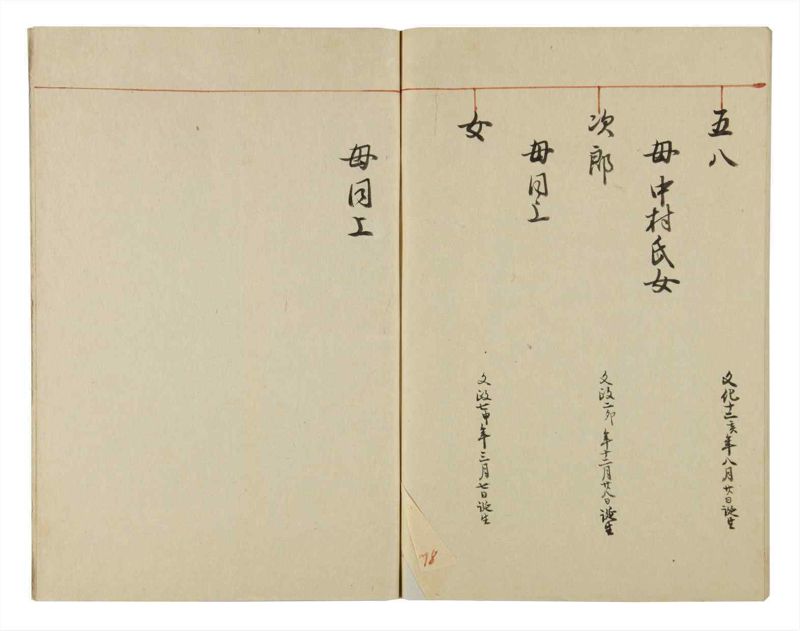 五八
文化十二亥年八月廿日誕生
母中村氏女
次郎
文政二卯年十二月廿八日誕生
母同上
女
文政七申年三月七日誕生
母同上
78